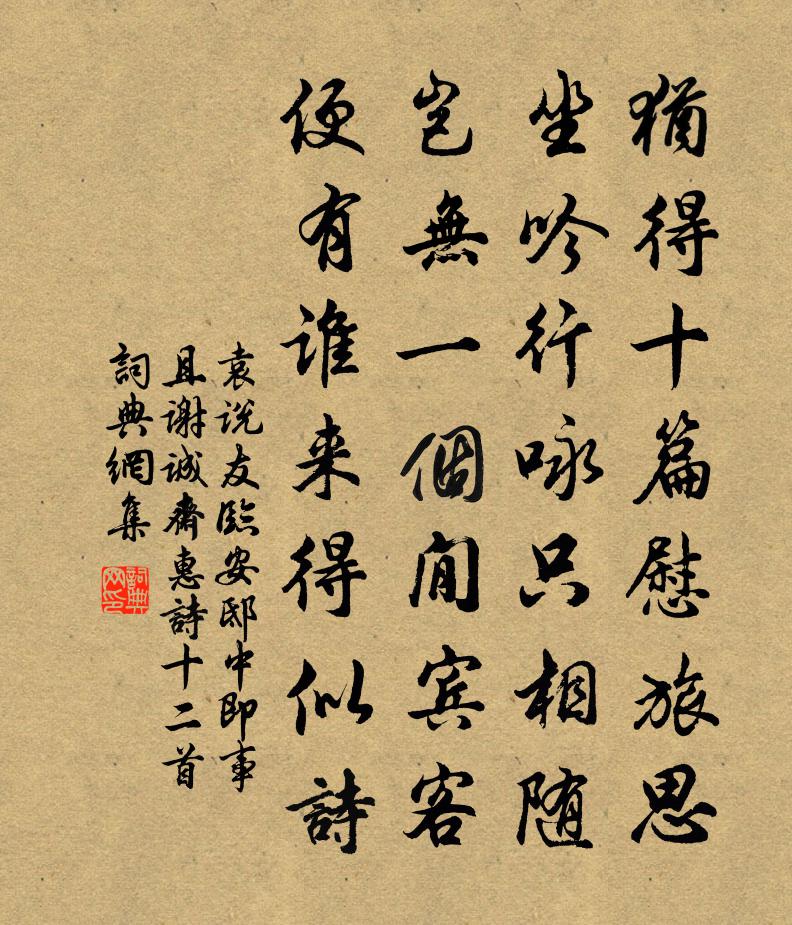 猶得十篇慰旅思
坐吟行咏只相随
岂無一個閒宾客
便有谁来得似詩
袁说友臨安邸中即事
且谢诚齋惠詩十二首
詞典網集
詞典网印